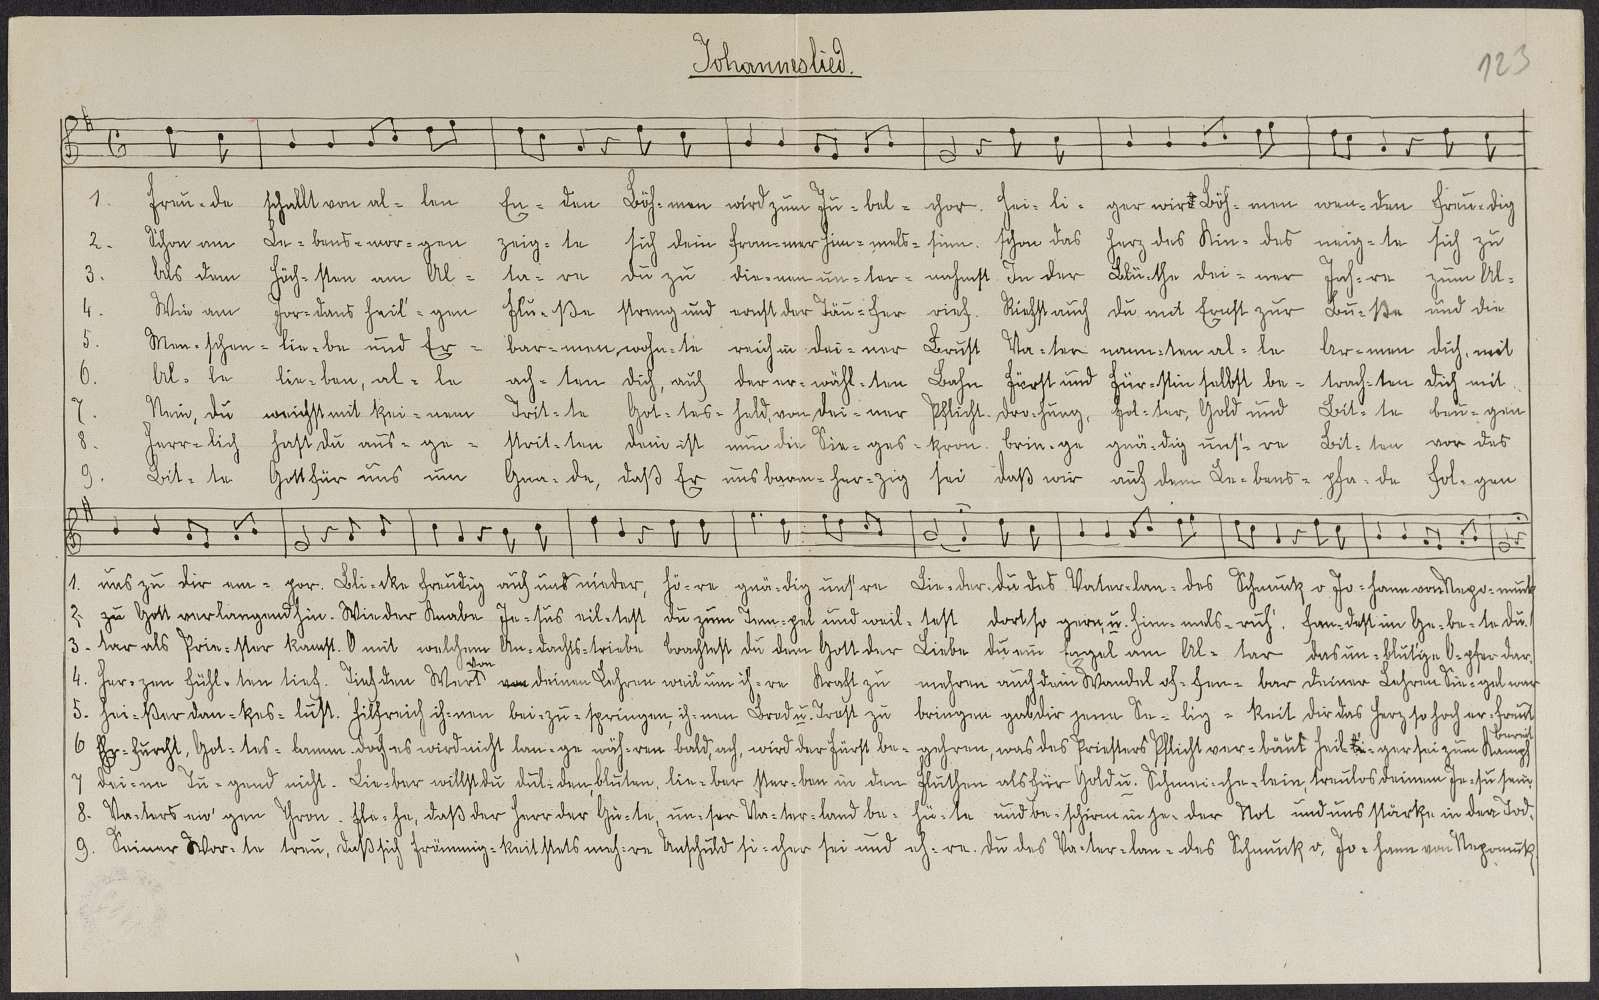 Johanneslied.
123
1. Freu-de schallt von al-len En-den Böh-men wird zum Ju-bel-chor. Hei-li-ger wird Böh-men wen-den Freu-dig
2. Schon am Le-bens-mor-gen zeig-te sich dein from-mer Him-mels-sinn. Schon das Herz des Kin-des neig-te sich zu
3. Als dem Höch-sten am Al-ta-re du zu die-nen un-ter-nahmst In der Blü-the dei-ner Jah-re zum Al-
4. Wie am Jor-dans heil'-gen Flu-ße streng und ernst der Täu-fer rief. Riefst auch du mit Ernst zur Bu-ße und die
5. Men-schen-lie-be und Er-bar-men, wohn-te reich in dei-ner Brust Va-ter nann-ten al-le Ar-men dich, mit
6. Al-le lie-ben, al-le ach-ten dich, auf der er-wähl-ten Bahn Fürst und Für-stin selbst be-trach-ten dich mit
7. Nein, du weichst mit kei-nem Trit-te Got-tes-held, von dei-ner Pflicht. Dro-hung, Fol-ter, Gold und Bit-te beu-gen
8. Herr-lich hast du aus-ge-strit-ten dein ist nun die Sie-ges-kron. brin-ge gnä-dig uns'-re Bit-ten vor des
9. Bit-te Gott für uns um Gna-de, daß Er uns barm-her-zig sei daß wir auf dem Le-bens-pfa-de fol-gen
1. uns zu dir em-por. Bli-cke freudig auf uns nieder, hö-re gnä-dig uns're Lie-der. du des Vater-lan-des Schmuck o Jo-hann von Nepo-muk
2. zu Gott verlangend hin. Wie der Knabe Je-sus eil-test du zum Tem-pel und weil-test dort so gern, u. Him-mels-ruh'. fan-dest im Ge-be-te du!
3. tar als Prie-ster kamst. O mit welchem An-dachts-triebe brachtest du dem Gott der Liebe du ein Engel am Al-tar das un-blut'ge O-pfer dar.
4. Her-zen fühl-ten tief. Tief den Wert von deinen Lehren weil um ih-re Kraft zu mehren auch dein Wandel of-fen-bar deiner Lehren Sie-gel war
5. hei-ßer dan-kes-lust. Hilfreich ih-nen bei-zu-springen, ih-nen Brod u. Trost zu bringen gab dir jene Se-lig-keit die das Herz so hoch er-freut
6 Ehr-furcht, Got-tes-lamm. doch es wird nicht lan-ge wäh-ren bald, ach, wird der Fürst be-gehren, was des Priesters Pflicht ver-beut heil'-ger sei zum Kampf bereit
7 dei-ne Tu-gend nicht. Lie-ber willst du dul-den, bluten, lie-ber ster-ben in den Fluthen als für Gold u. Schmei-che-lein, treulos deinem Je-su sein.
8. Va-ters ew'gen Thron. fle-he, daß der Herr der Gü-te, un-ser Va-ter-land be-hü-te und be-schirm in je-der Not und uns stärke in den Tod.
9. Seiner Wor-te treu, daß sich Frömmig-keit stets meh-re Unschuld si-cher sei und eh-re. du des Va-ter-lan-des Schmuck o, Jo-hann von Nepomuk.